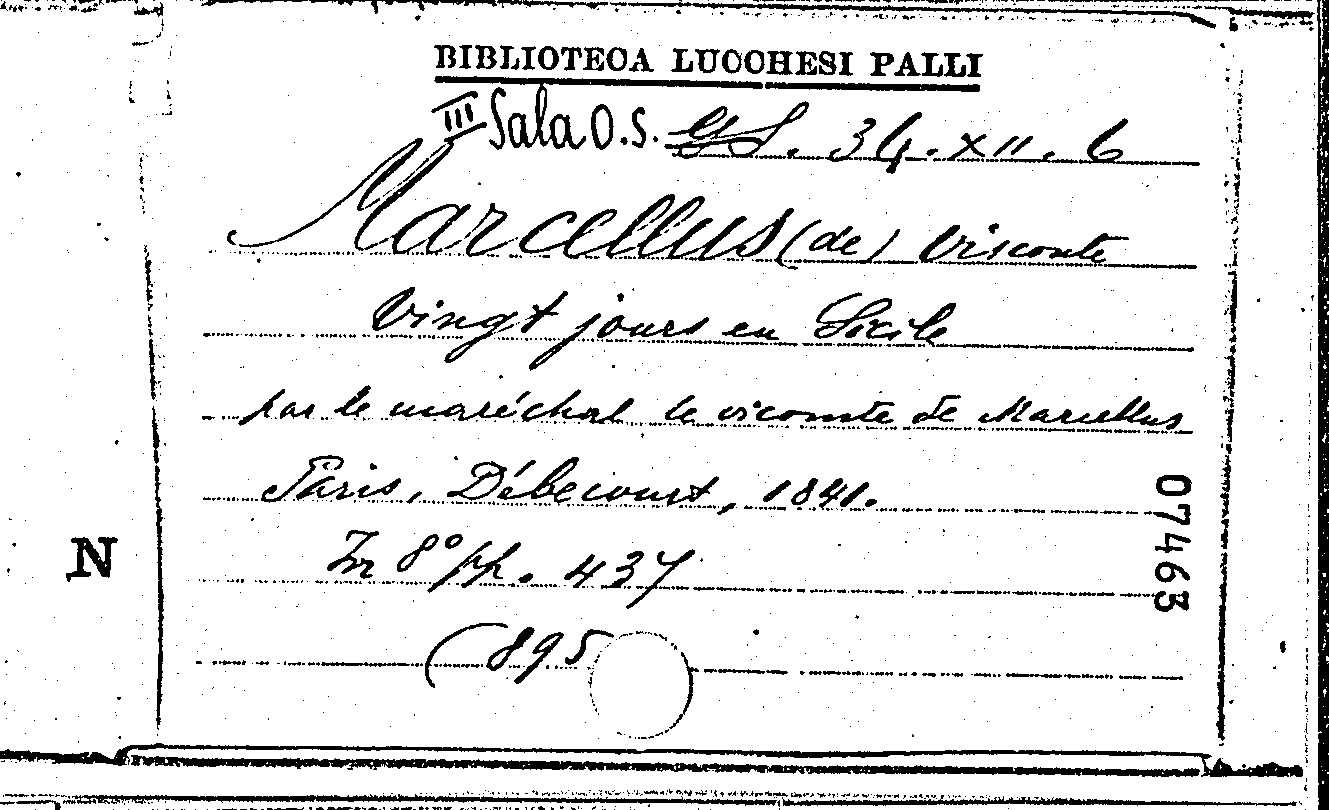 BIBLIOTECA LUCCHESI PALLI
III Sala O.S. 34. XII. 6
Marcellus (de) Visconte
Vingt jours en Sicile
par le maréchal le vicomte de Marcellus
Paris, Débecourt, 1841.
In 8° pp. 437
(895
07463
N